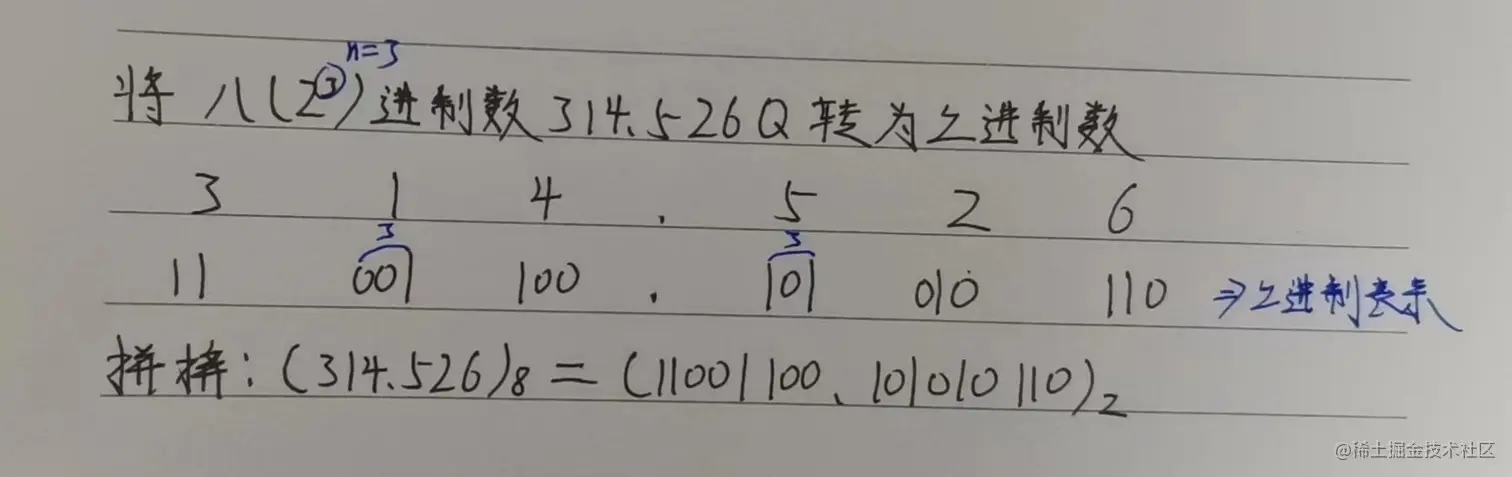 n=3
将八(2③)进制数314.526Q转为二进制数
3 1 4 . 5 2 6
3 3
11 001 100 . 101 010 110 ⇒二进制表示
拼接:(314.526)8=(11001100、101010110)2
@稀土掘金技术社区